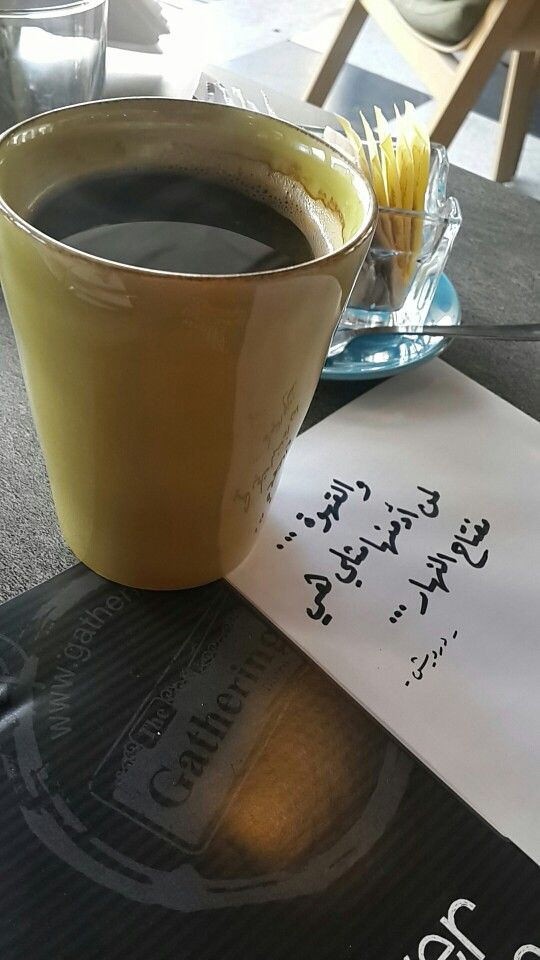 والقهوة ...
لمن أدمنها مثلي هي
مفتاح النهار ...
- درويش .
www.gather
The
Gathering